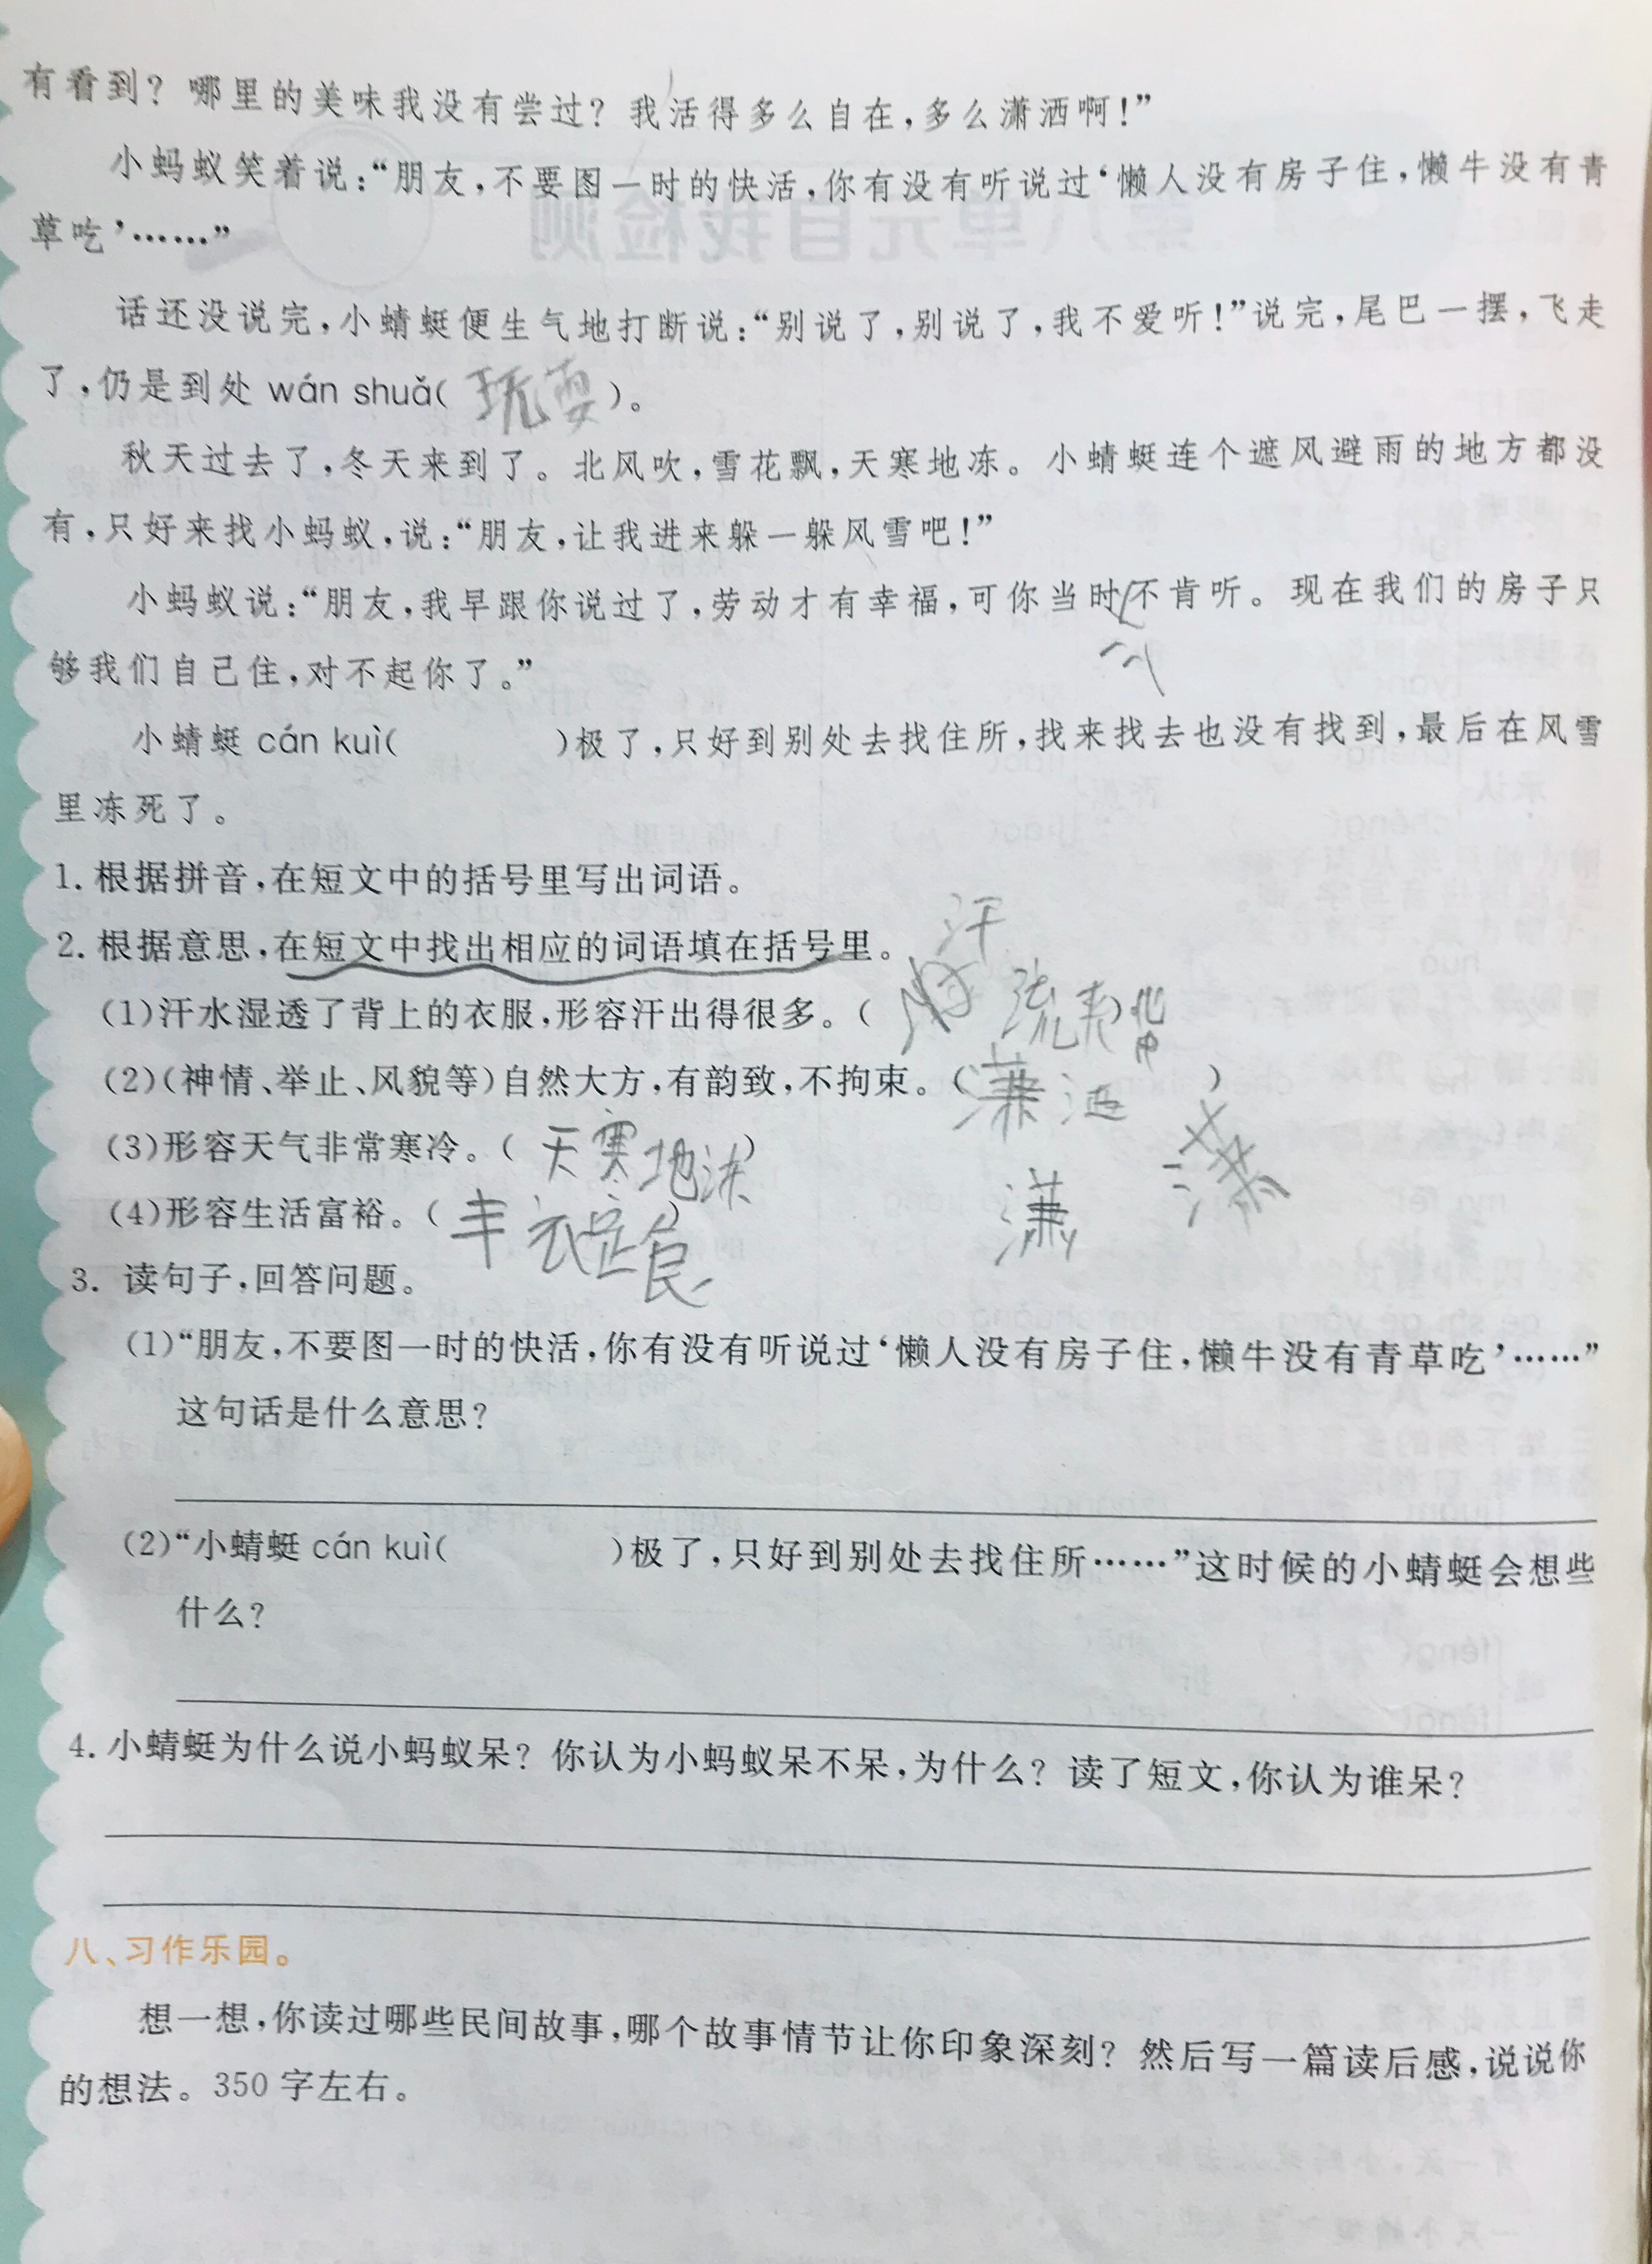 有看到？哪里的美味我没有尝过？我活得多么自在，多么潇洒啊！”
小蚂蚁笑着说：“朋友，不要图一时的快活，你有没有听说过‘懒人没有房子住，懒牛没有青
草吃’……”
话还没说完，小蜻蜓便生气地打断说：“别说了，别说了，我不爱听！”说完，尾巴一摆，飞走
了，仍是到处 wán shuǎ（玩耍）。
秋天过去了，冬天来到了。北风吹，雪花飘，天寒地冻。小蜻蜓连个遮风避雨的地方都没
有，只好来找小蚂蚁，说：“朋友，让我进来躲一躲风雪吧！”
小蚂蚁说：“朋友，我早跟你说过了，劳动才有幸福，可你当时不肯听。现在我们的房子只
够我们自己住，对不起你了。”
小蜻蜓 cán kuì（ ）极了，只好到别处去找住所，找来找去也没有找到，最后在风雪
里冻死了。
1. 根据拼音，在短文中的括号里写出词语。
2. 根据意思，在短文中找出相应的词语填在括号里。
汗
(1)汗水湿透了背上的衣服，形容汗出得很多。（ 流 ）
(2)（神情、举止、风貌等）自然大方，有韵致，不拘束。（潇洒）
(3)形容天气非常寒冷。（天寒地冻）
潇
(4)形容生活富裕。（丰衣足食）
3. 读句子，回答问题。
(1)“朋友，不要图一时的快活，你有没有听说过‘懒人没有房子住，懒牛没有青草吃’……”
这句话是什么意思？
(2)“小蜻蜓 cán kuì（ ）极了，只好到别处去找住所……”这时候的小蜻蜓会想些
什么？
4. 小蜻蜓为什么说小蚂蚁呆？你认为小蚂蚁呆不呆，为什么？读了短文，你认为谁呆？
八、习作乐园。
想一想，你读过哪些民间故事，哪个故事情节让你印象深刻？然后写一篇读后感，说说你
的想法。350 字左右。